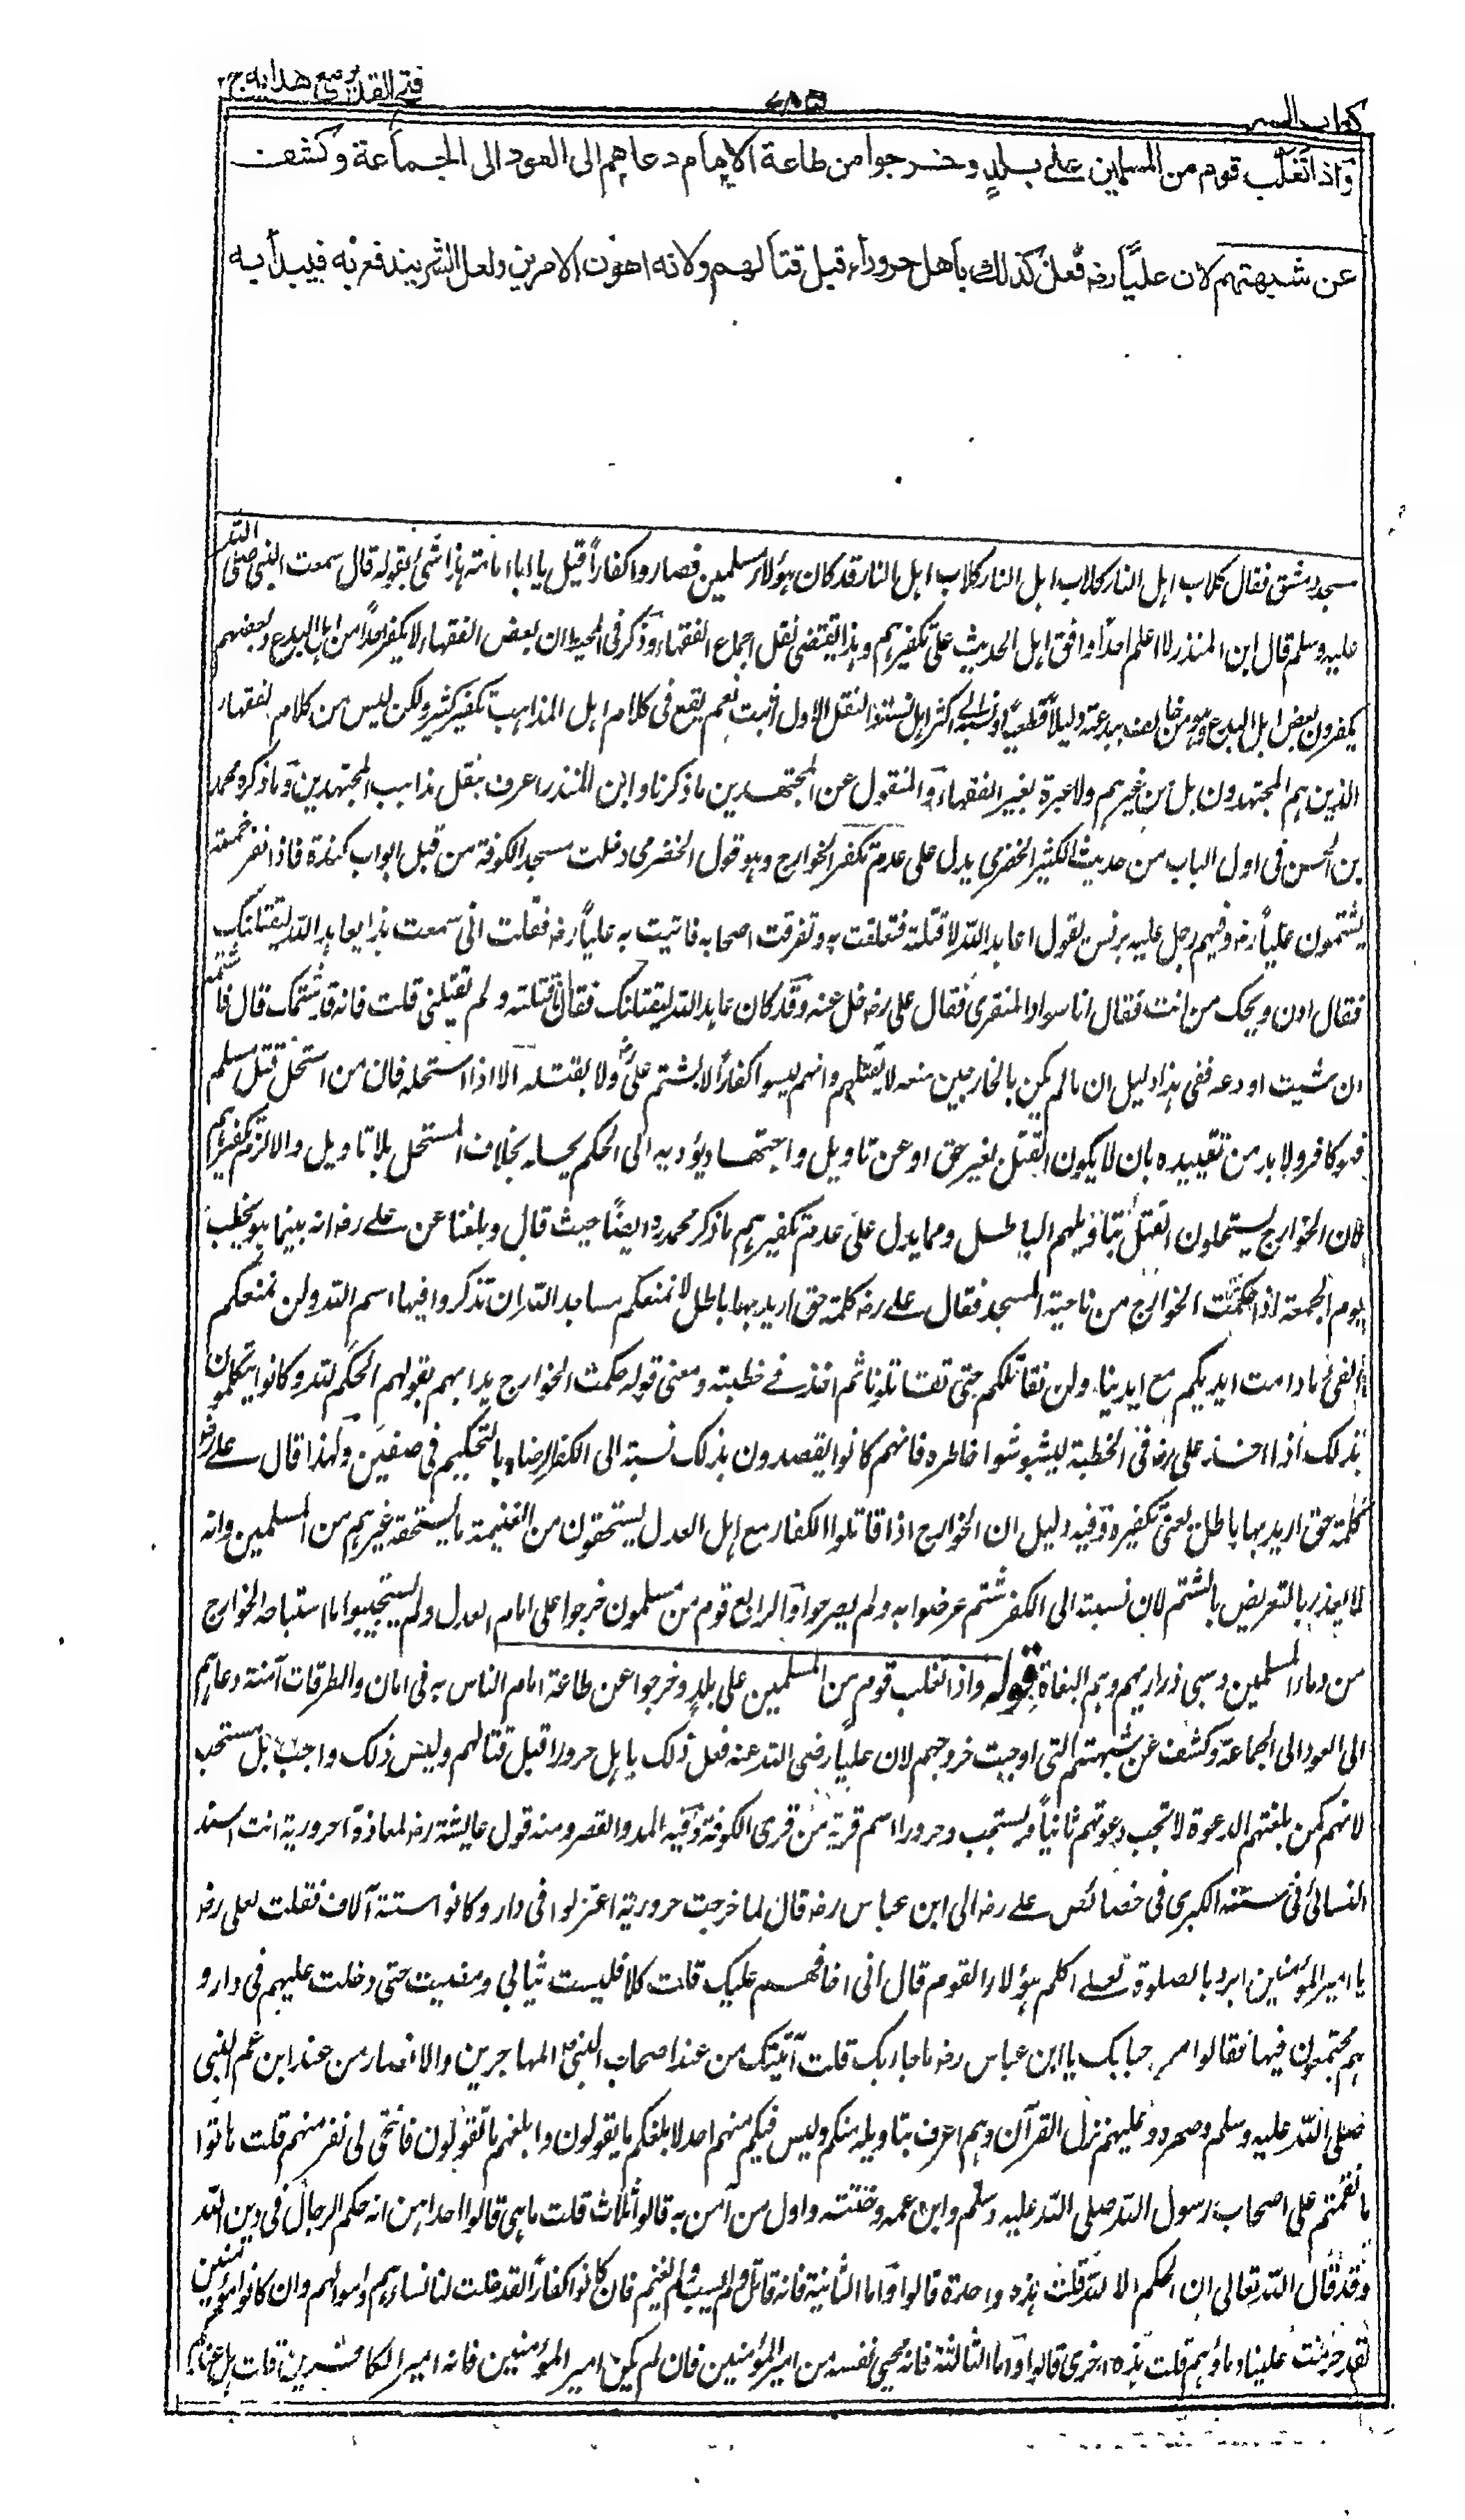 كتاب السير
٧٨٥
فتح القدير مع هدايه ج٢
واذا تغلب قوم من المسلمين على بلدٍ وخرجوا من طاعة الامام دعاهم الى العود الى الجماعة وكشف
عن شبهتهم لان عليًّا رضـ فعل كذلك بأهل حروراء قبل قتالهم ولانه اهون الامرين ولعل الشر يندفع به فيبدأ به
مسجد دمشق فقال كلاب اهل النار كلاب اهل النار كلاب اهل النار قد كان هؤلاء مسلمين فصاروا كفاراً قيل يا ابا امامة هذا شئ تقوله قال سمعت النبي صلى الله
عليه وسلم قال ابن المنذر لا اعلم احداً وافق اهل الحديث على تكفيرهم وهذا يقتضى نقل اجماع الفقهاء وذكر فى المحيط ان بعض الفقهاء لا يكفر احداً من اهل البدع وبعضهم
يكفرون بعض اهل البدع وهو من خالف ببدعته دليلاً قطعيًا ونسبه الى اكثر اهل السنة والنقل الاول اثبت نعم يقع فى كلام اهل المذاهب تكفير كثير ولكن ليس من كلام الفقهاء
الذين هم المجتهدون بل من غيرهم ولا عبرة بغير الفقهاء والمنقول عن المجتهدين ما ذكرنا وابن المنذر اعرف بنقل مذاهب المجتهدين وما ذكره محمد
بن الحسن فى اول الباب من حديث الكثير الحضرمى يدل على عدم تكفير الخوارج وهو قول الحضرمى دخلت مسجد الكوفة من قبل ابواب كندة فاذا نفر خمسة
يشتمون علياً رضـ وفيهم رجل عليه برنس يقول اعاهد الله لاقتلنه فتعلقت به وتفرقت اصحابه فاتيت به علياً رضـ فقلت انى سمعت هذا يعاهد الله ليقتلنك
فقال ادن ويحك من انت فقال انا سوار المنقرى فقال على رضـ خل عنه فقلت اخلى عنه وقد كان عاهد الله ليقتلنك فقال افاقتله ولم يقتلنى قلت فانه قد شتمك قال فاشتمه
ان شئت او دعه ففى هذا دليل ان ما لم يكن بالخارجين منعة لا يقتلهم وانهم ليسوا كفاراً لا بشتم على رضـ ولا بقتله الا اذا استحله فان من استحل قتل مسلم
فهو كافر ولا بد من تقييده بان لا يكون القتل بغير حق او عن تاويل واجتهاد يؤديه الى الحكم بحله بخلاف المستحل بلا تاويل والا لزم تكفيرهم
لان الخوارج يستحلون القتل بتاويلهم الباطل ومما يدل على عدم تكفيرهم ما ذكر محمد رح ايضًا حيث قال وبلغنا عن على رضـ انه بينما هو يخطب
يوم الجمعة اذ حكمت الخوارج من ناحية المسجد فقال على رضـ كلمة حق اريد بها باطل لا نمنعكم مساجد الله ان تذكروا فيها اسم الله ولن نمنعكم
الفئ ما دامت ايديكم مع ايدينا ولن نقاتلكم حتى تقاتلونا ثم اخذ فى خطبته ومعنى قوله حكمت الخوارج نداءهم بقولهم الحكم لله وكانوا يتكلمون
بذلك اذا اخذ على رضـ فى الخطبة ليشوشوا خاطره فانهم كانوا يقصدون بذلك نسبة الى الكفر لرضاه بالتحكيم فى صفين ولهذا قال على رضـ
كلمة حق اريد بها باطل يعنى تكفيره وفيه دليل ان الخوارج اذا قاتلوا الكفار مع اهل العدل يستحقون من الغنيمة ما يستحقه غيرهم من المسلمين وانه
لا يعذر بالتعريض بالشتم لان نسبته الى الكفر شتم عرضوا به ولم يصرحوا والرابع قوم من مسلمون خرجوا على امام العدل ولم يستبيحوا ما استباحه الخوارج
من دماء المسلمين وسبى ذراريهم وهم البغاة قوله واذا تغلب قوم من المسلمين على بلدٍ وخرجوا عن طاعة امام الناس به فى امان والطرقات آمنة دعاهم
الى العود الى الجماعة وكشف عن شبهتهم التى اوجبت خروجهم لان علياً رضى الله عنه فعل ذلك باهل حرورا قبل قتالهم وليس ذلك واجب بل مستحب
لانهم كمن بلغتهم الدعوة لا تجب دعوتهم ثانياً ويستحب وحرورا اسم قرية من قرى الكوفة وفيه المد والقصر ومنه قول عايشة رضـ لمعاذة أحرورية انت اسند
النسائى فى سننه الكبرى فى خصائص على رضـ الى ابن عباس رضـ قال لما خرجت حرورية اعتزلوا فى دار وكانوا ستة آلاف فقلت لعلى رضـ
يا امير المؤمنين ابرد بالصلوة لعلى اكلم هؤلاء القوم قال انى اخافهم عليك قلت كلا فلبست ثيابى ومضيت حتى دخلت عليهم فى دار و
هم مجتمعون فيها فقالوا مرحبا بك يا ابن عباس رضـ ما جاء بك قلت آتيتك من عند اصحاب النبى المهاجرين والانصار من عند ابن عم النبى
صلى الله عليه وسلم وصهره وعليهم نزل القرآن وهم اعرف بتاويله منكم وليس فيكم منهم احد لابلغكم ما يقولون وابلغهم ما تقولون فانتحى لى نفر منهم قلت هاتوا
ما نقمتم على اصحاب رسول الله صلى الله عليه وسلم وابن عمه وختنه واول من آمن به قالوا ثلاث قلت ما هى قالوا احداهن انه حكم الرجال فى دين الله
وقد قال الله تعالى ان الحكم الا لله قلت هذه واحدة قالوا واما الثانية فانه قاتل ولم يسب ولم يغنم فان كانوا كفاراً لقد حلت لنا نساؤهم واموالهم وان كانوا مؤمنين
لقد حرمت علينا دماؤهم قلت هذه اخرى قالوا واما الثالثة فانه محى نفسه من امير المؤمنين فان لم يكن امير المؤمنين فانه امير الكافرين قلت هل عندكم